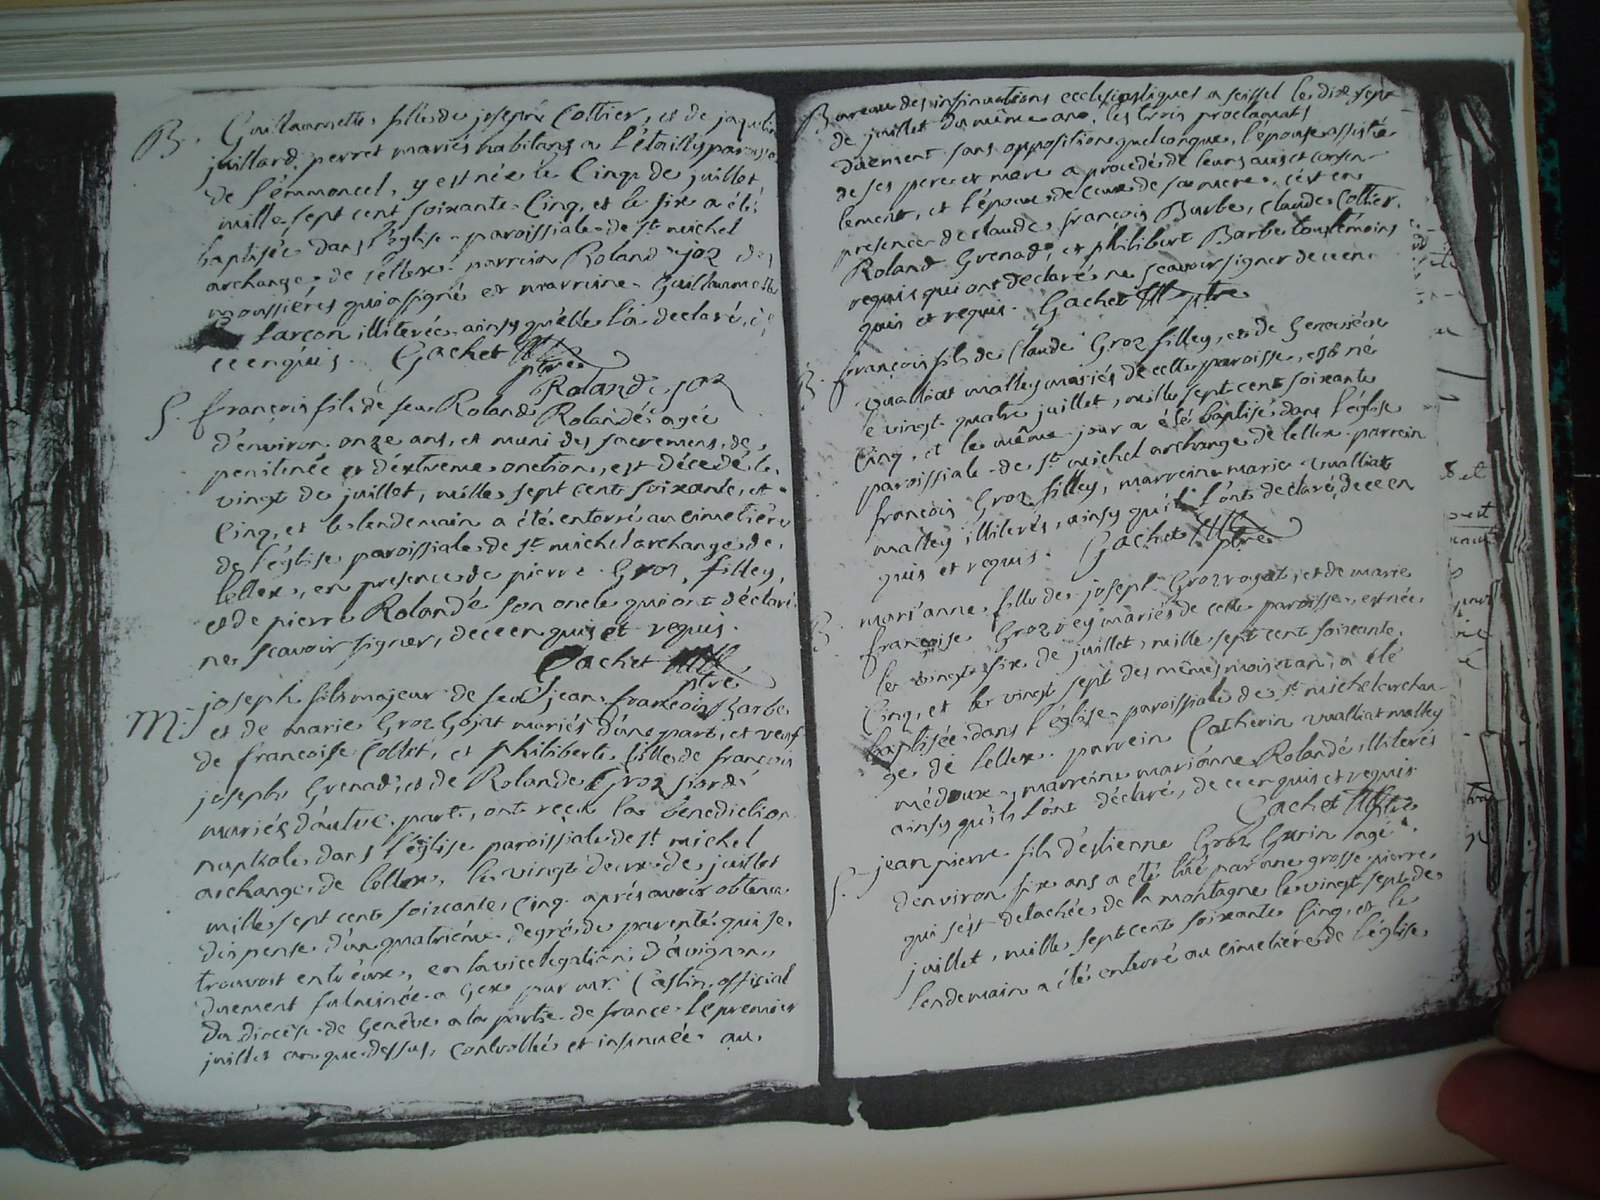 B. Guillaumette fille de joseph Cottier, et de jaqueline
juillard perret mariés habitans a l'étaillys paroisse
de Septmoncel, y est née le Cinq de juillet
mille sept cent soixante Cinq, et le six a été
baptisée dans l'église paroissiale de st michel
archange de lellex. parrein Roland joz des
moussieres qui a signé et marreine Guillaumette
Lançon illiterée ainsy qu'elle l'a declaré, de
ce enquis. Gachet ptre
Roland joz
S. françois fils de feu Roland Rolandé agé
d'environ onze ans, et muni des sacremens de
penitence et d'extreme onction, est décedé le
vingt de juillet, mille sept cent soixante, et
Cinq, et le lendemain a été enterré au cimetière
de l'église paroissiale de st michel archange de
lellex, en presence de pierre Groz filley,
et de pierre Rolandé son oncle qui ont déclaré
ne scavoir signer, de ce enquis et requis.
Gachet ptre
M. joseph fils majeur de feu jean françois Barbe
et de marie Groz Gojat mariés d'une part, et veuf
de francoise Collet, et philiberte fille de françois
joseph Grenad, et de Rolande Groz
mariés d'autre part, ont reçu la bénediction
nuptiale dans l'église paroissiale de st michel
archange de lellex, le vingt deux de juillet
mille sept cent soixante, cinq après avoir obtenu
dispense d'un quatriéme degré de parenté qui se
trouvoit entre eux, en la vicelegation d'avignon,
duement fulminée a Gex par mr. Castin official
du diocèse de Genève a la partie de france le premier
juillet an que dessus, Controllée et insinuée au
Bureau des insinuations ecclesiastiques a seissel le dix sept
de juillet du même an, les trois proclamats
duement sans opposition quelconque, l'epouse assistée
de ses pere et mere a procedé de leurs avis et consen-
tement, et l'époux de Ceux de sa mere, c'est en
presence de claude françois Barbe, claude Cottier,
Roland Grenad, et philibert Barbe tous témoins
requis qui ont declaré ne scavoir signer de ce en-
quis et requis. Gachet ptre
B. françois fils de Claude Groz filley, et de Genevieve
vualliat malley mariés de cette paroisse, est né
le vingt quatre juillet, mille sept cent soixante
Cinq, et le même jour a été baptisé dans l'église
paroissiale de st michel archange de lellex. parrein
françois Groz filley, marreine marie vualliat
malley illiterés, ainsy qu'ils l'ont declaré, de ce en
quis et requis. Gachet ptre
B. mari'anne fille de joseph Groz rogat, et de marie
françoise Groz rey mariés de cette paroisse, est née
le vingt six de juillet, mille sept cent soixante
Cinq, et le vingt sept des mêmes mois et an, a été
baptisée dans l'église paroissiale de st michel archan-
ge de lellex. parrein Catherin vualliat malley
médoux, marreine marianne Rolandé illiterés
ainsy qu'ils l'ont déclaré, de ce enquis et requis.
Gachet ptre
S. jean pierre fils d'estienne Groz Gurin agé
d'environ six ans a été tué par une grosse pierre
qui s'est detachée de la montagne le vingt sept de
juillet, mille sept cent soixante Cinq, et le
lendemain a été enterré au cimetière de l'église